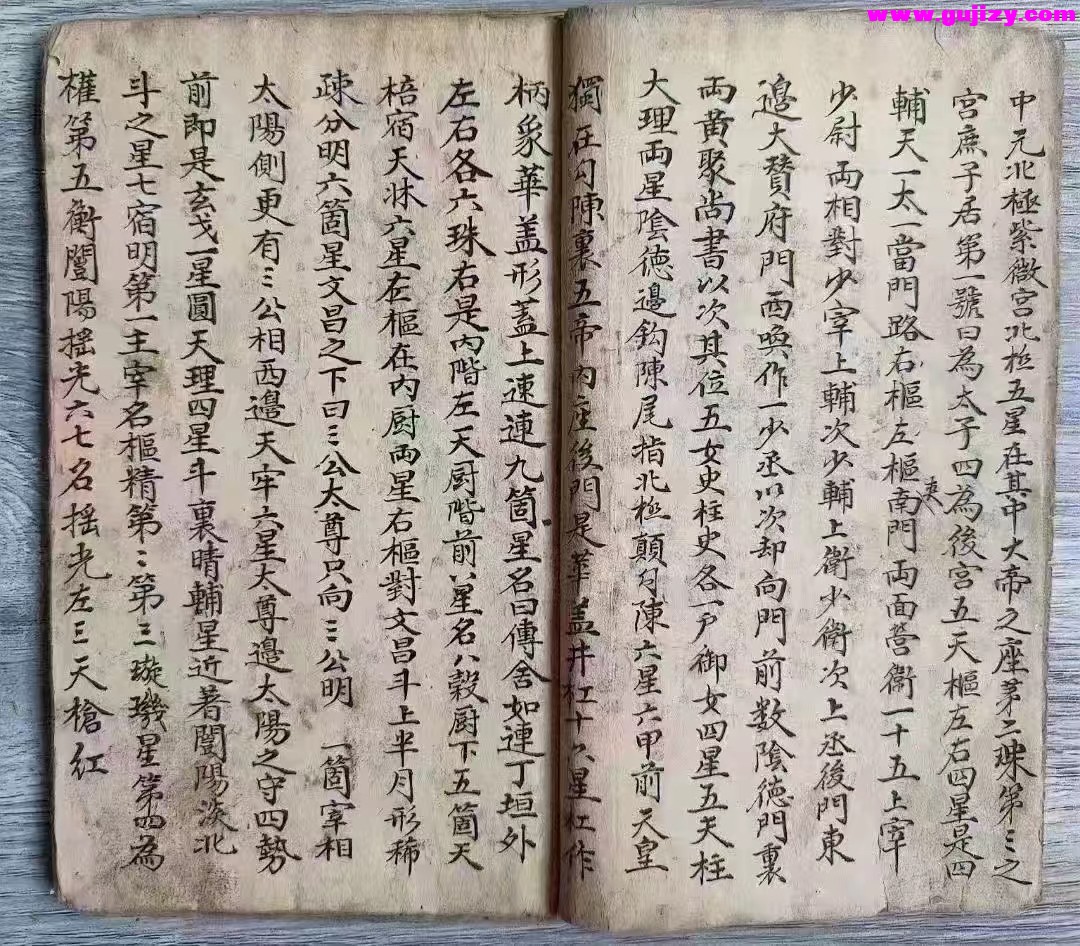 www.gujizy.com
中元北極紫微宮北極五星在其中大帝之座苐二珠第三之
宮庶子居第一號曰為太子四為後宮五天樞左右四星是四
輔天一太一當門路右樞左樞南門両面营衞一十五上宰
夾
少尉両相對少宰上輔次少輔上衛少衛次上丞後門東
邉大賛府門西喚作一少丞以次却向門前数陰徳門裏
両黄聚尚書以次其位五女史柱史各一戸御女四星五天柱
大理両星陰徳邉鈎陳尾指北極顛勾陳六星六甲前天皇
獨在勾陳裏五帝内座後門是華盖并杠十六星杠作
柄象華盖形蓋上連連九箇星名曰傳舍如連丁垣外
左右各六珠右是内階左天厨階前八星名八榖厨下五箇天
棓宿天牀六星在樞在内厨両星右樞對文昌斗上半月形稀
疎分明六箇星文昌之下曰三公太尊只向三公明 一箇宰相
太陽側更有三公相西邉天牢六星太尊邉太陽之守四勢
前即是玄戈一星圓天理四星斗裏晴輔星近著闓陽淡北
斗之星七宿明第一主宰名樞精第二第三璇璣星第四為
權第五衡闓陽揺光六七名揺光左三天槍紅